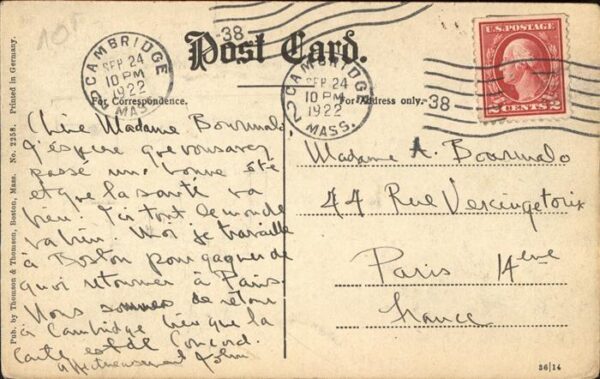 10F
CAMBRIDGE
SEP 24
10 PM
1922
MASS.
2
38
Post Card.
CAMBRIDGE
SEP 24
10 PM
1922
MASS.
2
38
U.S. POSTAGE
2 CENTS 2
For Correspondence.
For Address only.
Chère Madame Bourmalo,
J'espère que vous avez
passé une bonne été
et que la santé va
bien. Ici tout le monde
va bien. Moi je travaille
à Boston pour gagner de
quoi retourner à Paris.
Nous sommes de retour
à Cambridge bien que la
carte est de Concord.
affectueusement John
Madame A. Bourmalo
44 Rue Vercingetorix
Paris 14eme
France
Pub. by Thomson & Thomson, Boston, Mass. No. 2258. Printed in Germany.
36/14